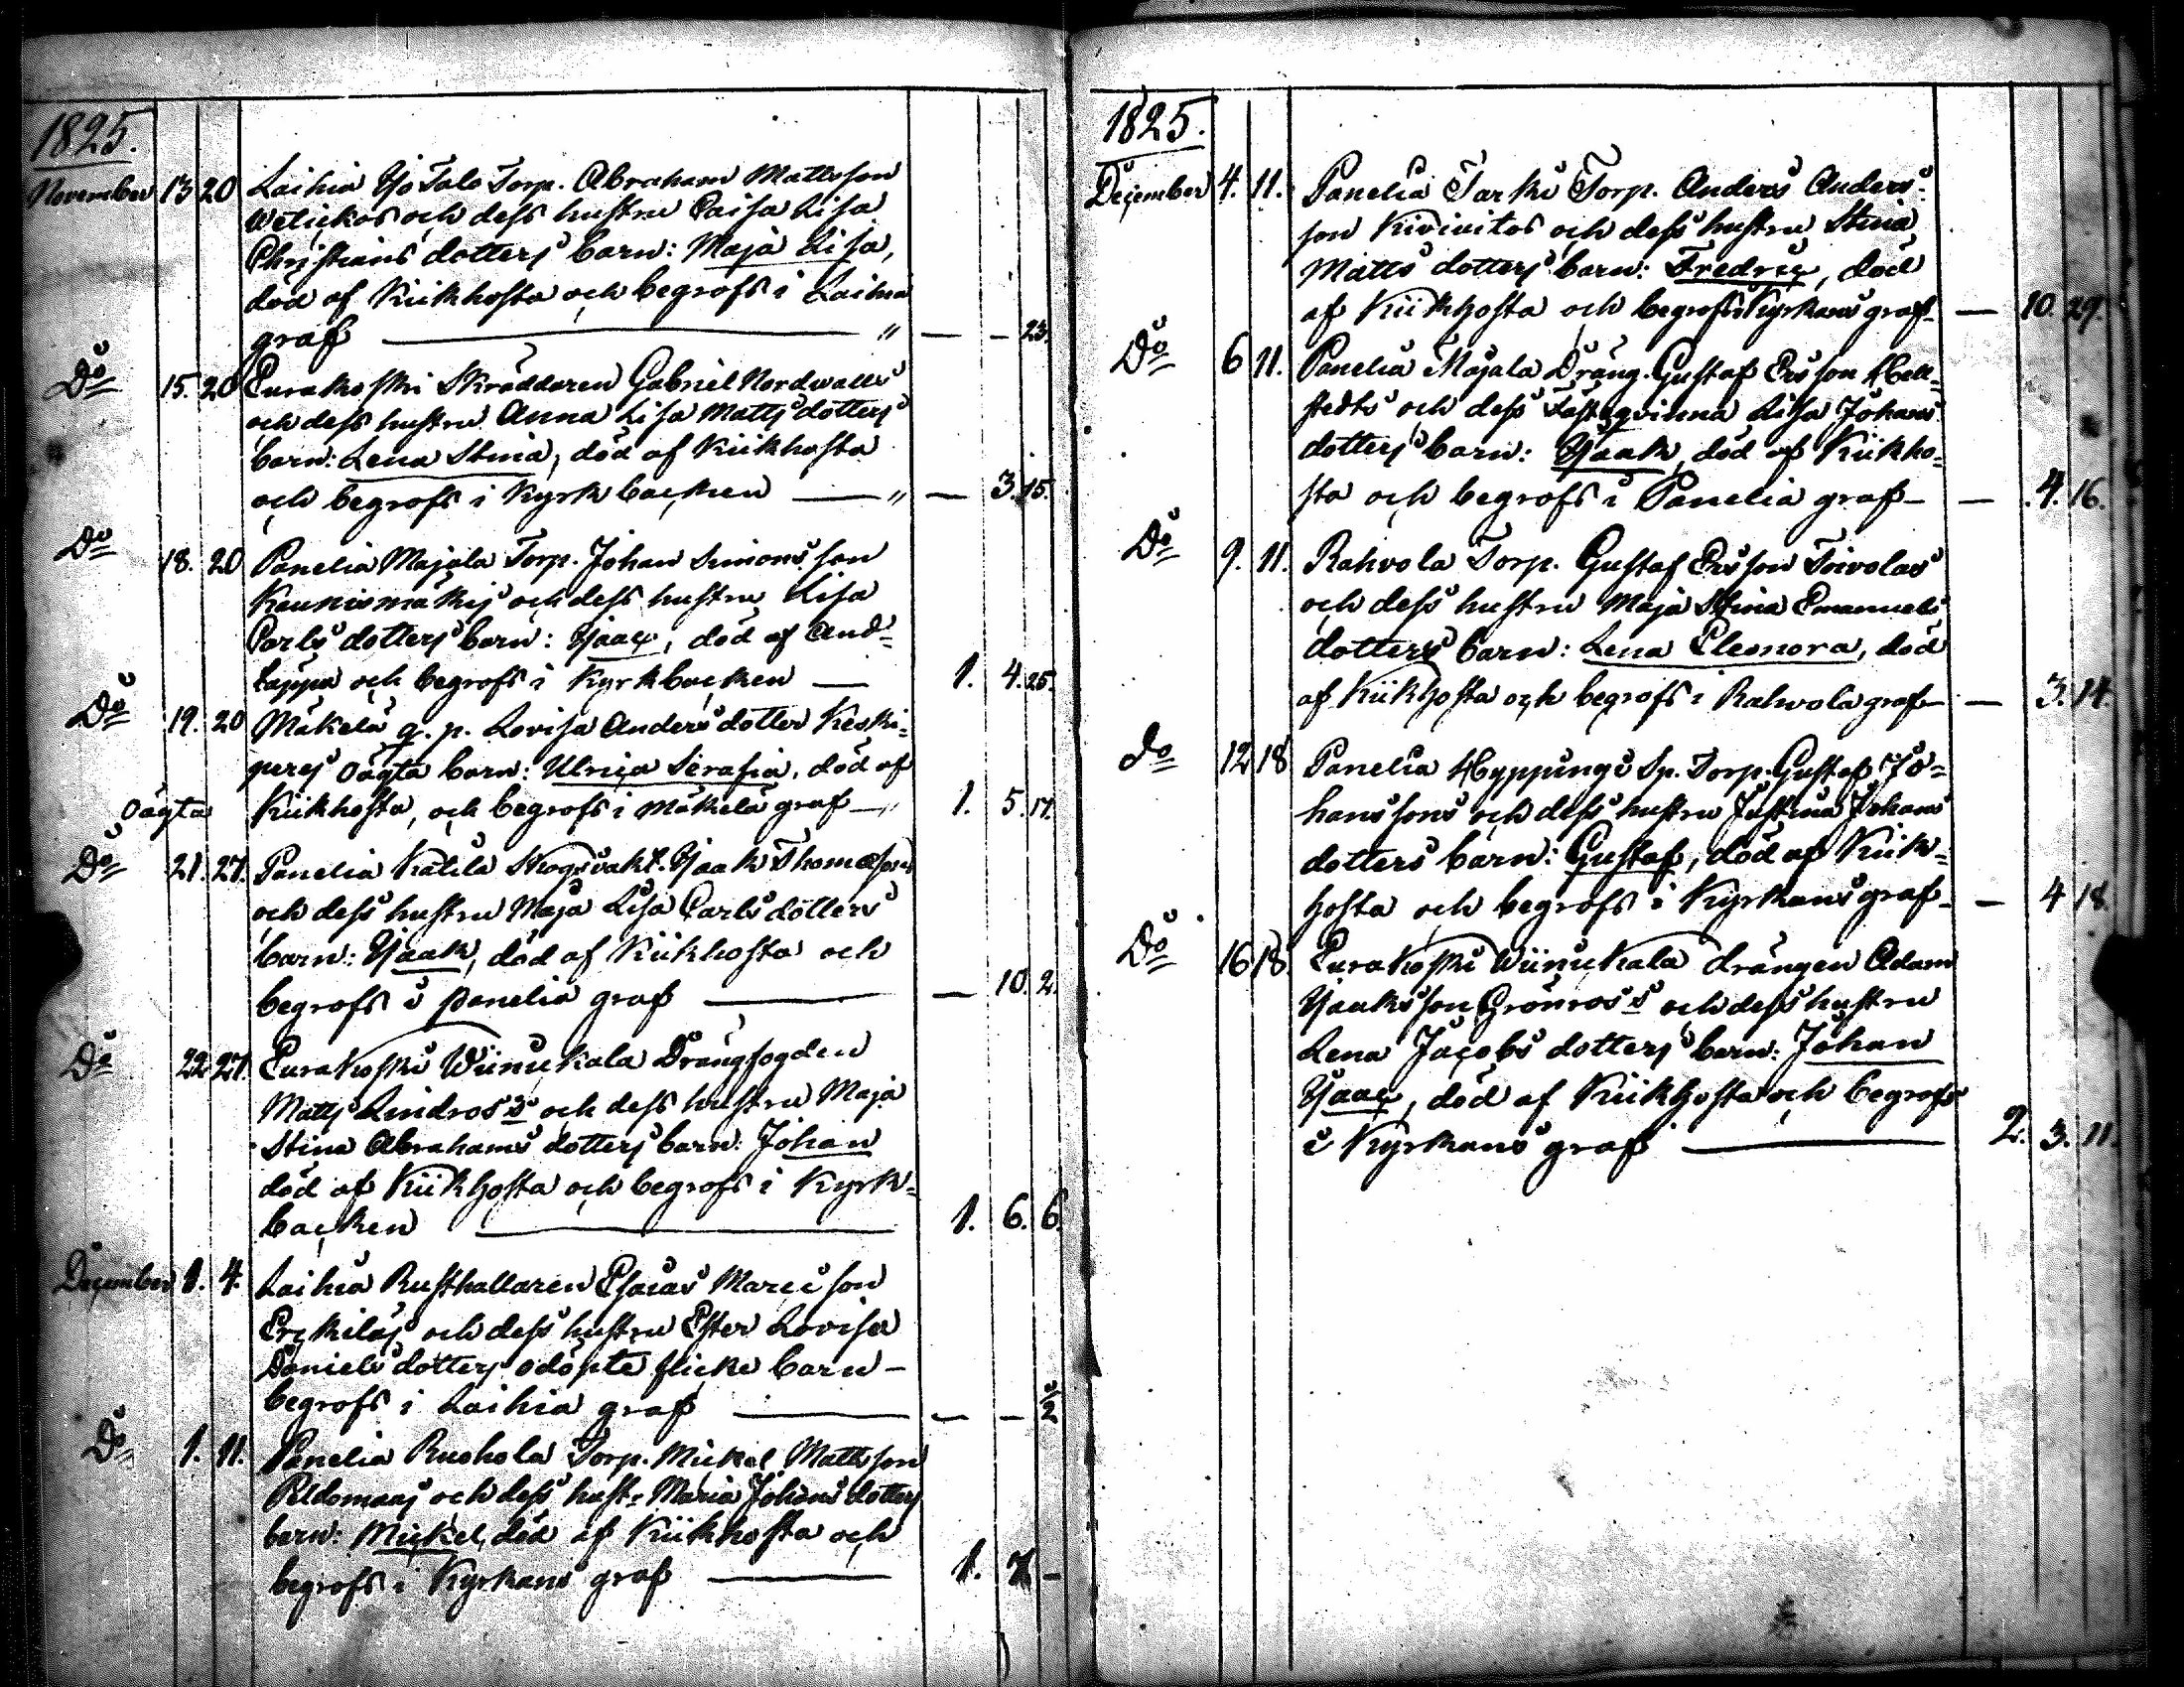 1825.
November 13 20 Laihia Yjo Talo Torp. Abraham Mattsson
Wetickos och dess hustru Caisa Lisa
Christians dotters barn: Maja Lisa,
död af Kiikhosta och begrofs i Laihia
graf " — — 23.
Do 15. 20 Eurakoski Skräddaren Gabriel Nordwalls
och dess hustru Anna Lisa Matts dotters
barn: Lena Stina, död af Kiikhosta
och begrofs i Kyrkbacken — " — 3. 15.
Do 18. 20 Panelia Majala Torp. Johan Simonsson
Kaunismäkis och dess hustru Lisa
Carls dotters barn: Isaac, död af And-
täppa och begrofs i Kyrkbacken — 1. 4. 25.
Do 19. 20 Mäkelä q. p. Lovisa Anders dotter Keski-
perej oägta barn: Ulrica Serafia, död af
oägta Kiikhosta, och begrofs i Mäkelä graf — " 1. 5. 17.
Do 21. 27. Panelia Katila Skogsvakt. Isaak Thomæson
och dess hustru Maja Lisa Carls dotters
barn: Isaak, död af Kiikhosta och
begrofs i Panelia graf — — 10. 2.
Do 22 27. Eurakoski Wiinikala Drängfogden
Matts Lindross's och dess hustru Maja
Stina Abrahams dotters barn: Johan
död af Kiikhosta och begrofs i Kyrk-
backen — 1. 6. 6.
December 1. 4. Laihia Rusthallaren Esaias Marcisson
Erckilas och dess hustru Ester Lovisa
Daniels dotters odöpte flicke barn —
begrofs i Laihia graf — — — 2
Do 1. 11. Panelia Ruohola Torp. Mickel Mattsson
Peldomaas och dess hust: Maria Johans dotters
barn: Mickel, död af Kiikhosta och
begrofs i Kyrkans graf — 1. 7 —
1825.
December 4. 11. Panelia Tarki Torp. Anders Anders-
son Kivinitos och dess hustru Stina
Matts dotters barn: Fredric, död
af Kiikhosta och begrofs i Kyrkans graf — — 10. 29.
Do 6 11. Panelia Majala Dräng. Gustaf Ersson Hell-
stedts och dess Fästeqvinna Lisa Johans
dotters barn: Isaak, död af Kiikho-
sta och begrofs i Panelia graf — — 4. 16.
Do 9. 11. Rahvola Torp. Gustaf Ersson Toivolas
och dess hustru Maja Stina Emanuels
dotters barn: Lena Eleonora, död
af Kiikhosta och begrofs i Rahvola graf — — 3. 14.
do 12 18 Panelia Hyppings Sp. Torp. Gustaf Jo-
hanssons och dess hustru Justina Johans
dotters barn: Gustaf, död af Kiik-
hosta och begrofs i Kyrkans graf — — 4 18.
Do 16 18. Eurakoski Wiinikala drängen Adam
Isaksson Grönross's och dess hustru
Lena Jacobs dotters barn: Johan
Isaac, död af Kiikhosta och begrofs
i Kyrkans graf — 2. 3. 11.